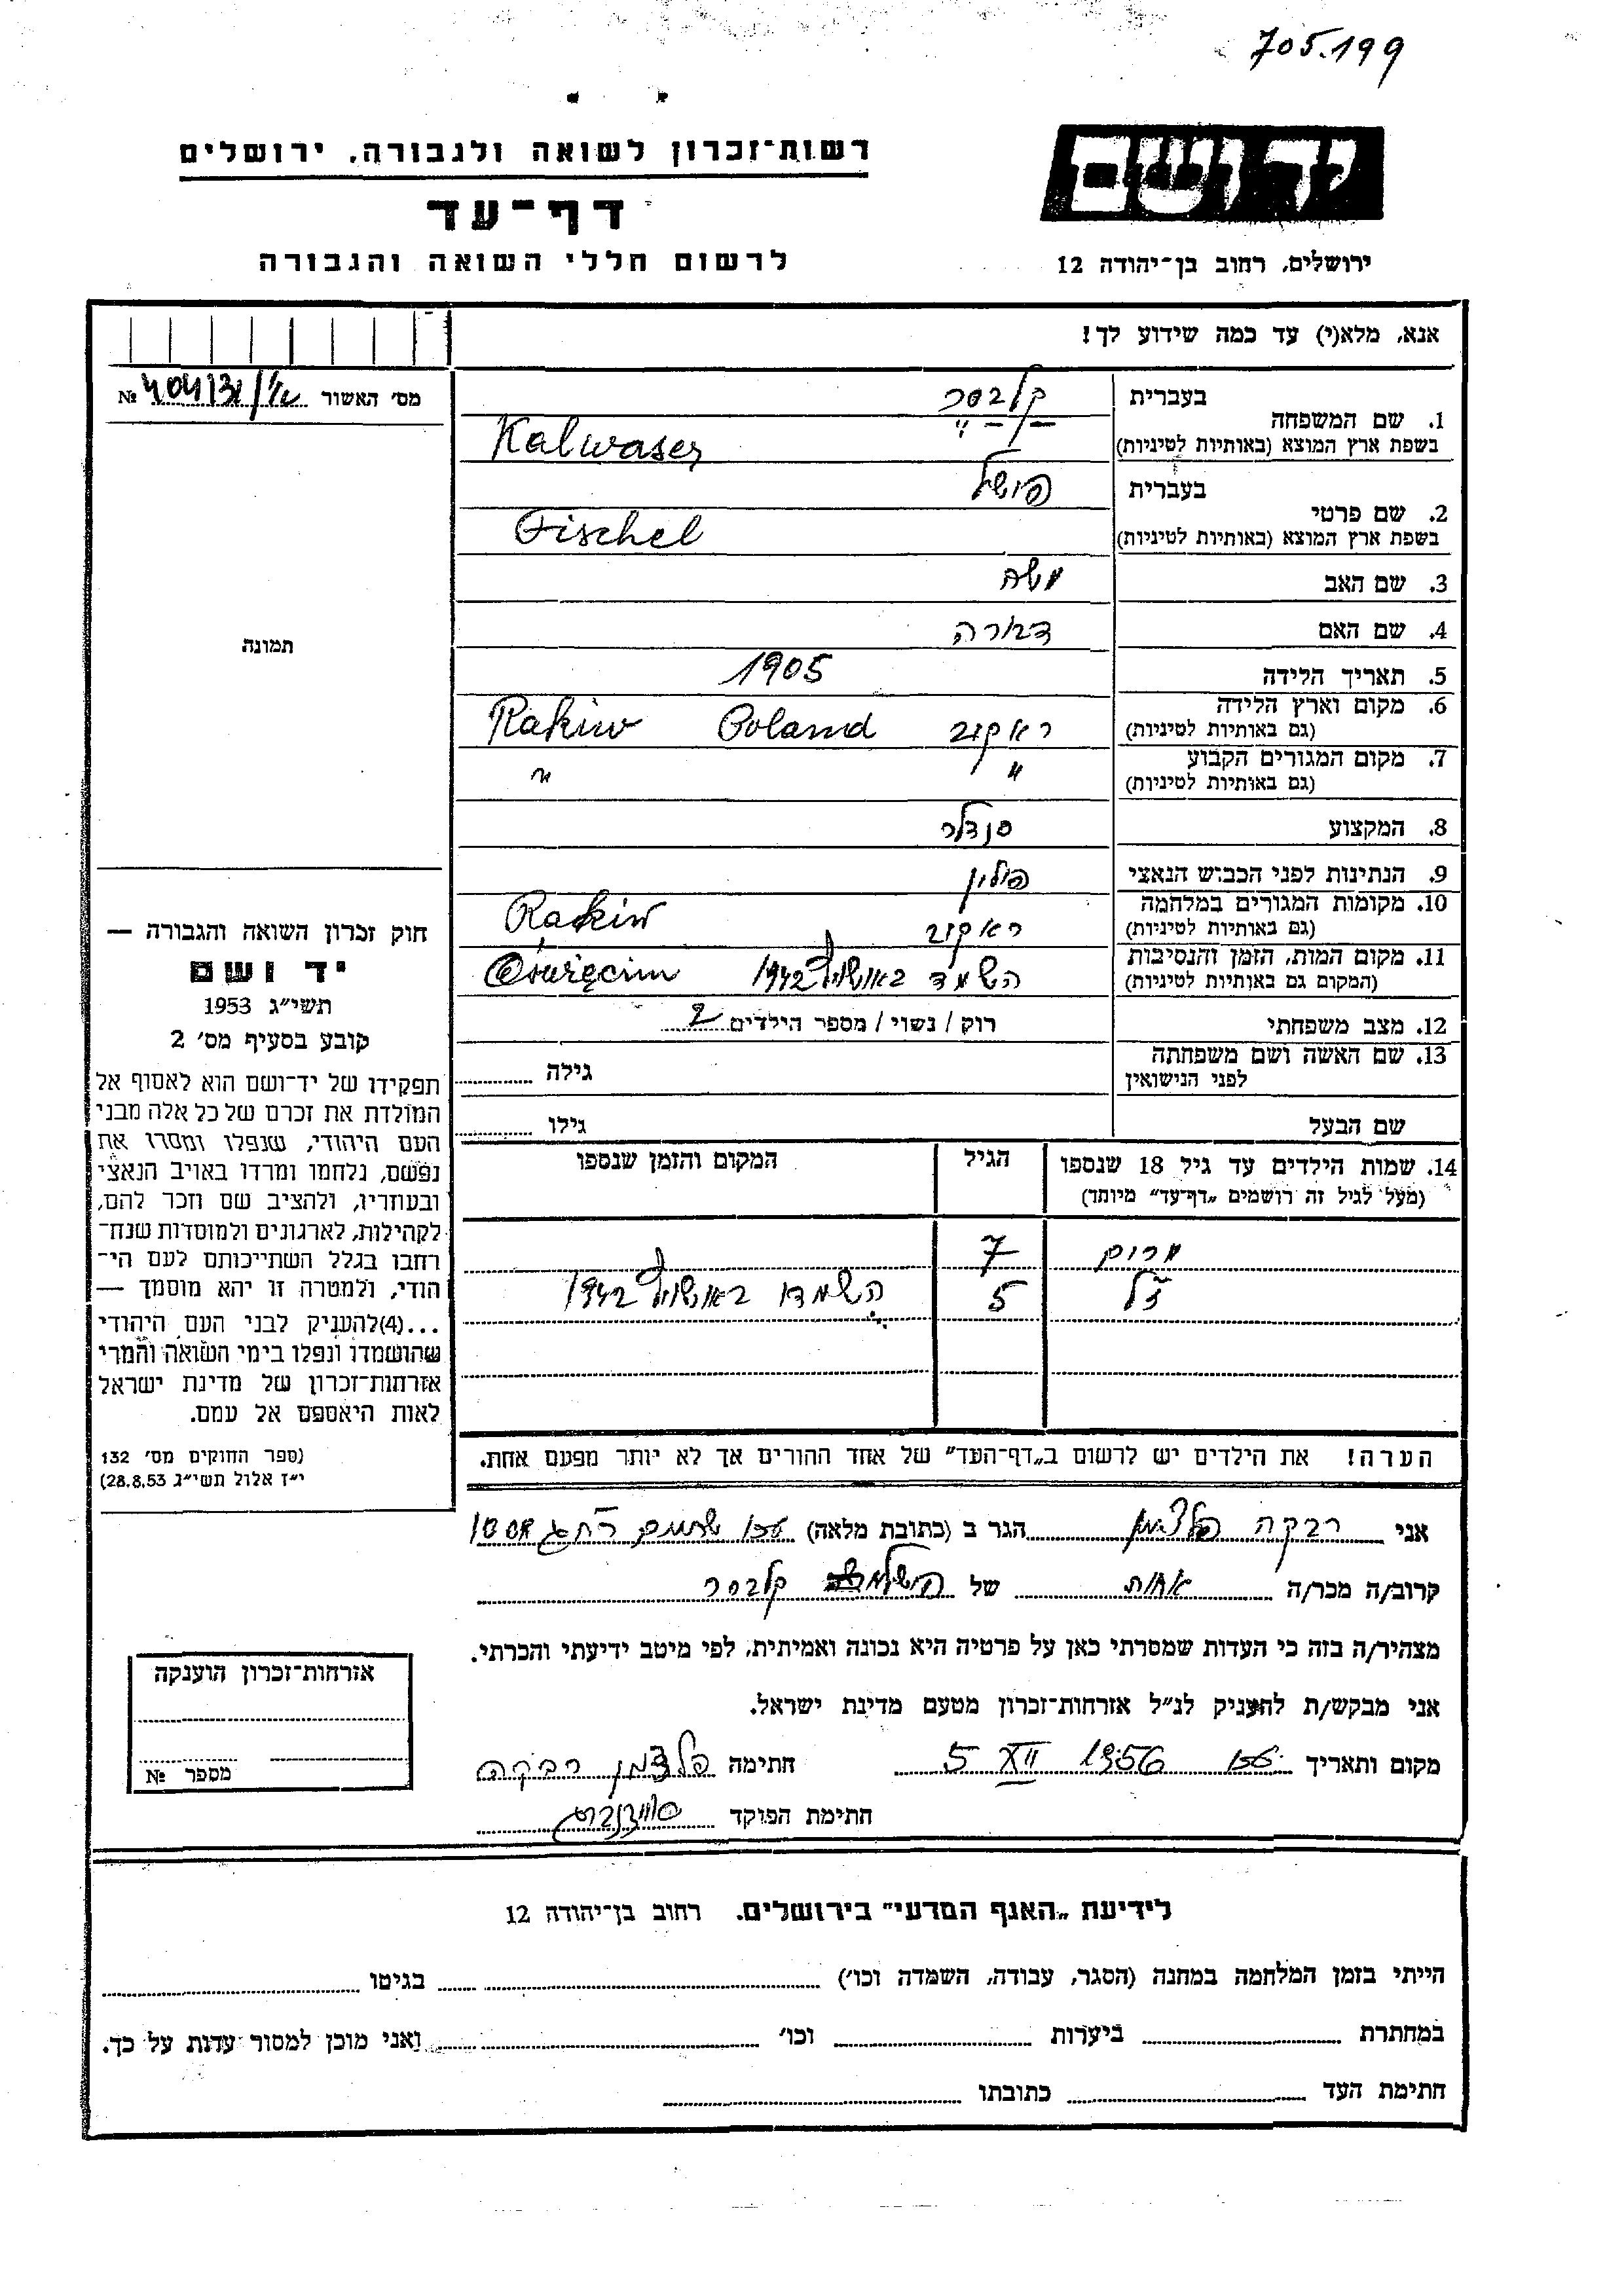 705.199
רשות־זכרון לשואה ולגבורה, ירושלים
יד ושם
דף־עד
לרשום חללי השואה והגבורה
ירושלים, רחוב בן־יהודה 12
אנא, מלא(י) עד כמה שידוע לך!
מס׳ האשור №
1. שם המשפחה
בעברית קלבסר
בשפת ארץ המוצא (באותיות לטיניות) Kalwaser
2. שם פרטי
בעברית פישל
בשפת ארץ המוצא (באותיות לטיניות) Fischel
3. שם האב משה
4. שם האם דבורה
תמונה
5. תאריך הלידה 1905
6. מקום וארץ הלידה (גם באותיות לטיניות) ראקוב Poland Rakiw
7. מקום המגורים הקבוע (גם באותיות לטיניות) " "
8. המקצוע סנדלר
9. הנתינות לפני הכבוש הנאצי פולין
10. מקומות המגורים במלחמה (גם באותיות לטיניות) ראקוב Rakiw
11. מקום המות, הזמן והנסיבות (המקום גם באותיות לטיניות) השמד באושויץ 1942 Oświęcim
12. מצב משפחתי רוק / נשוי / מספר הילדים 2
13. שם האשה ושם משפחתה לפני הנישואין גילה
שם הבעל גילו
14. שמות הילדים עד גיל 18 שנספו הגיל המקום והזמן שנספו
(מעל לגיל זה רושמים „דף־עד” מיוחד)
7
5 השמדו באושויץ 1942
הערה! את הילדים יש לרשום ב„דף־העד” של אחד ההורים אך לא יותר מפעם אחת.
חוק זכרון השואה והגבורה —
יד ושם
תשי״ג 1953
קובע בסעיף מס׳ 2
תפקידו של יד־ושם הוא לאסוף אל
המולדת את זכרם של כל אלה מבני
העם היהודי, שנפלו ומסרו את
נפשם, נלחמו ומרדו באויב הנאצי
ובעוזריו, ולהציב שם וזכר להם,
לקהילות, לארגונים ולמוסדות שנח־
רבו בגלל השתייכותם לעם הי־
הודי, ולמטרה זו יהא מוסמך —
...(4)להעניק לבני העם היהודי
שהושמדו ונפלו בימי השואה והמרי
אזרחות־זכרון של מדינת ישראל
לאות היאספם אל עמם.
(ספר החוקים מס׳ 132
י״ז אלול תשי״ג 28.8.53)
אני רבקה פלצמן הגר ב (כתובת מלאה)
קרוב/ה מכר/ה אחות של קלבסר
מצהיר/ה בזה כי העדות שמסרתי כאן על פרטיה היא נכונה ואמיתית, לפי מיטב ידיעתי והכרתי.
אני מבקש/ת להעניק לנ״ל אזרחות־זכרון מטעם מדינת ישראל.
מקום ותאריך 5 XII 1956 חתימה פלצמן רבקה
חתימת הפוקד
אזרחות־זכרון הוענקה
מספר №
לידיעת „האגף המדעי” בירושלים, רחוב בן־יהודה 12
הייתי בזמן המלחמה במחנה (הסגר, עבודה, השמדה וכו׳) בגיטו
במחתרת ביערות וכו׳ ואני מוכן למסור עדות על כך.
חתימת העד כתובתו